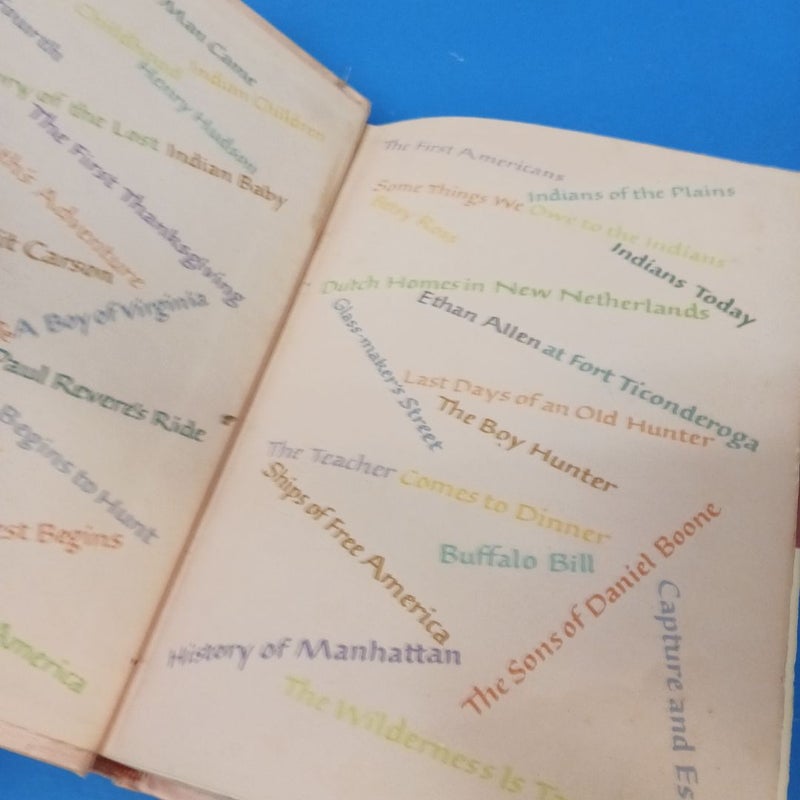 Man Came
Childhood
Indian Children
Henry Hudson
ry of the Lost Indian Baby
The First Thanksgiving
Adventure
it Carson
A Boy of Virginia
Paul Revere's Ride
Begins to Hunt
est Begins
America
The First Americans
Indians of the Plains
Some Things We Owe to the Indians
Betsy Ross
Indians Today
Dutch Homes in New Netherlands
Ethan Allen at Fort Ticonderoga
Glass-maker's Street
Last Days of an Old Hunter
The Boy Hunter
The Teacher Comes to Dinner
Ships of Free America
Buffalo Bill
The Sons of Daniel Boone
Capture and Es
History of Manhattan
The Wilderness Is Ta